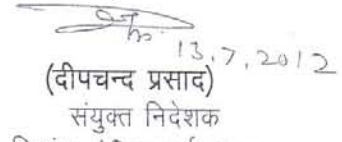 13.7.2012
(दीपचन्द प्रसाद)
संयुक्त निदेशक